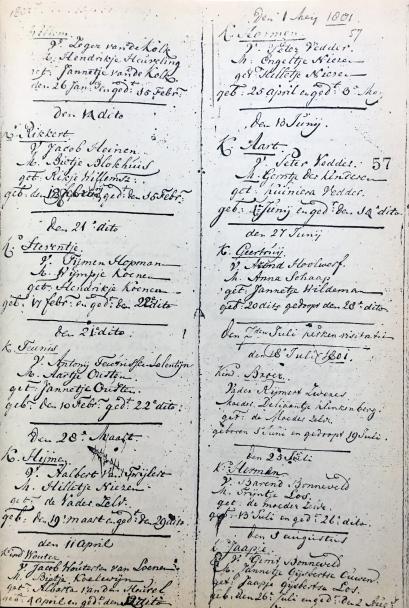 1801
Willem
V. Zeger van de Kolk
M. Hendrikje Heuveling
get. Jannetje van de Kolk
den 26 Jan. en ged. 15 Febr.
den 14 dito
K. Rikkert
V. Jacob Heinen
M. Bietje Blokhuis
get. Rikje Willemse
geb. de Febr. ged. den 15 Febr.
den 21 dito
K. Steventje
V. Tijmen Hopman
M. Wijmpje Koenen
get. Hendrikje Koenen
geb. 17 febr. en ged. den 22 dito
den 21 dito
K. Teunis
V. Antonij Teunisse Valentijn
M. Aartje Outsen
get. Jannetje Outsen
geb. den 10 Febr. ged. 22 dito.
den 28 Maart.
K. Hijme
V. Walbert van
M. Hilletje Niezen
get. de Vader Zelv.
geb. den 19 maart en ged. den 29 dito
den 11 April
Kind Wouter
V. Jacob Wouteren van
M. Bietje Koelewijn
get. Alberta van den Heuvel
geb. 4 april en ged. den 12 dito
Den 1 Meij 1801.
57
K. Harmen
V. Peter Vedder.
M. Engeltje Niezen
get. Hilletje Niezen
geb. 25 april en ged. 3 Meij
den 13 Junij.
K. Aart.
V. Peter Vedder.
57
M. Gerritje
get. Vedder.
geb. Junij en ged. den 14 dito
den 27 Junij
K. Geertruij.
V. Hoolwerf.
M. Anna Schaap
get. Jannetje Wildeman
geb. 20 dito gedoopt den 28 dito
den 7den Julij kerken visitatie
den 18 Julij 1801.
Kind Broer
Vader Rijmert Zwenes
Moeder Klinkenberg
get. de Moeder Zelv.
geboren 5 Junij en gedoopt 19 Julij.
den 25 Julij
K. Hermen
V. Barend Bonneveld
M. Trijntje Los.
get. de moeder Zelve.
geb. 13 Julij en ged. 26 dito.
den 1 augustus
K. Jaapje
V. Gerrit Bonneveld
M. Jannetje Gijsbertse
get. Jaapje Gijsbertse Los.
geb. den 26 Julij en ged. den 2 Aug.